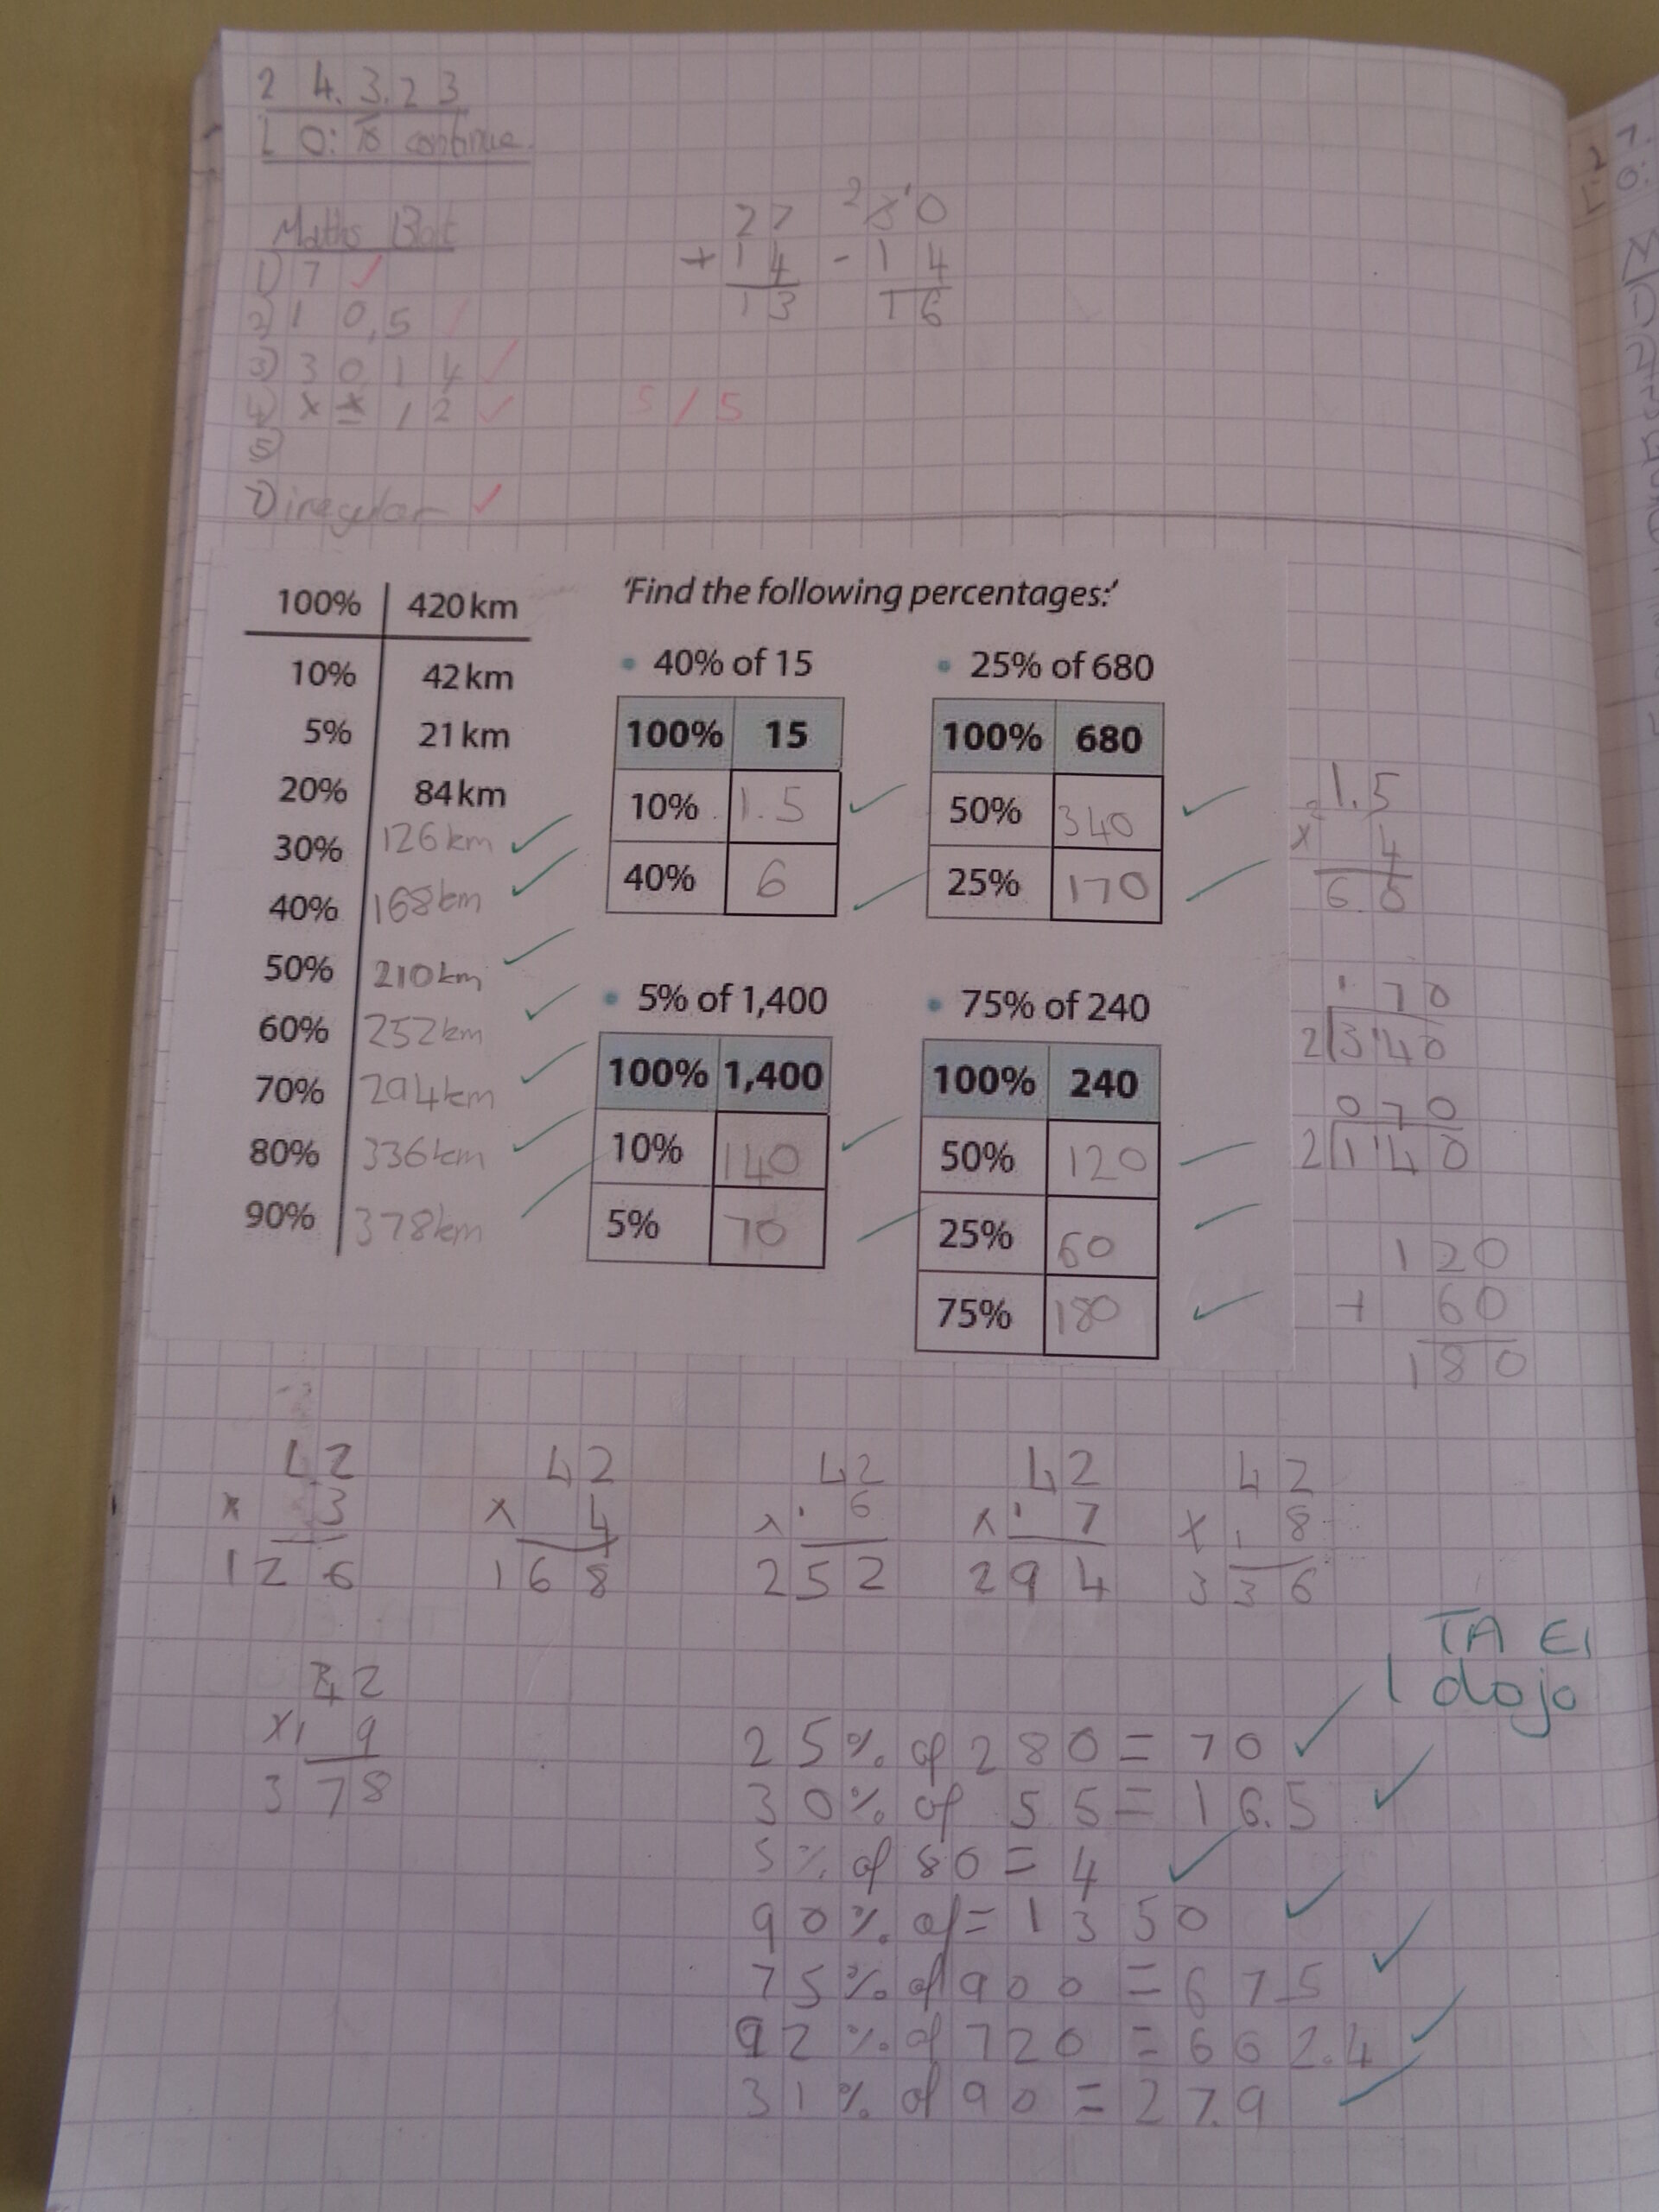 24.3.23
LO: To continue.
Maths Bot
1) 7 ✓
2) 10,5 ✓
3) 3014 ✓
4) 12 ✓
5)
5/5
1) iregular ✓
27
+14
13
30
-14
16
100% 420 km
10% 42 km
5% 21 km
20% 84 km
30% 126 km ✓
40% 168 km ✓
50% 210 km ✓
60% 252 km ✓
70% 294 km ✓
80% 336 km ✓
90% 378 km ✓
'Find the following percentages:'
• 40% of 15
100% 15
10% 1.5 ✓
40% 6 ✓
• 25% of 680
100% 680
50% 340 ✓
25% 170 ✓
• 5% of 1,400
100% 1,400
10% 140 ✓
5% 70 ✓
• 75% of 240
100% 240
50% 120 ✓
25% 60 ✓
75% 180 ✓
1.5
x 4
6.0
170
2 340
070
2 140
120
+ 60
180
42
x 3
126
42
x 4
168
42
x 6
252
42
x 7
294
42
x 8
336
42
x 9
378
TA
1 dojo
25% of 280 = 70 ✓
30% of 55 = 16.5 ✓
5% of 80 = 4 ✓
90% of = 1350 ✓
75% of 900 = 675 ✓
92% of 720 = 662.4 ✓
31% of 90 = 27.9 ✓